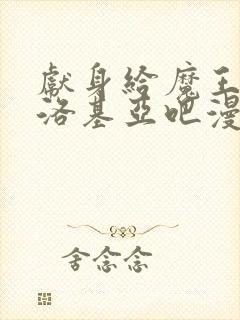 獻身給魔王
洛基亞吧漫
舍念念